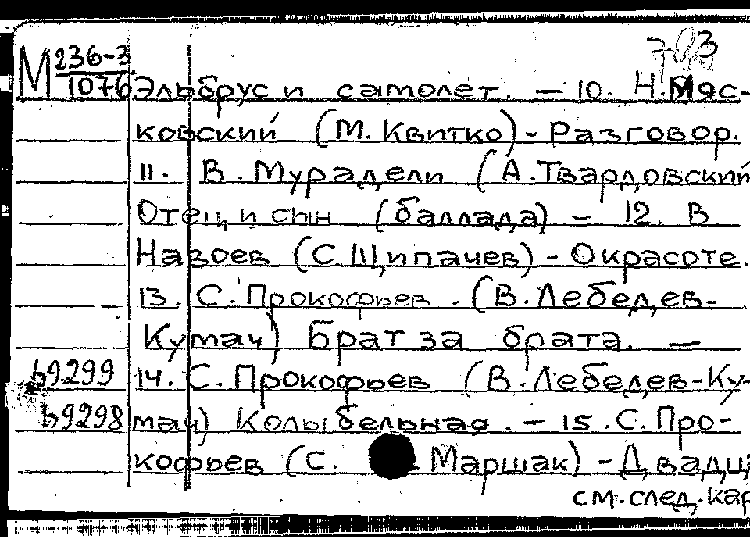 М 236-3
1076 Эльбрус и самолёт. — 10. Н. Мяс-
ковский (М. Квитко) - Разговор.
11. В. Мурадели (А. Твардовский
Отец и сын (баллада) - 12. В
Назоев (С. Щипачев) - О красоте.
13. С. Прокофьев. (В. Лебедев-
Кумач) Брат за брата. —
ь9299 14. С. Прокофьев (В. Лебедев-Ку-
ь9298 мач) Колыбельная. - 15. С. Про-
кофьев (С. Маршак) - Двадц
см. след. кар